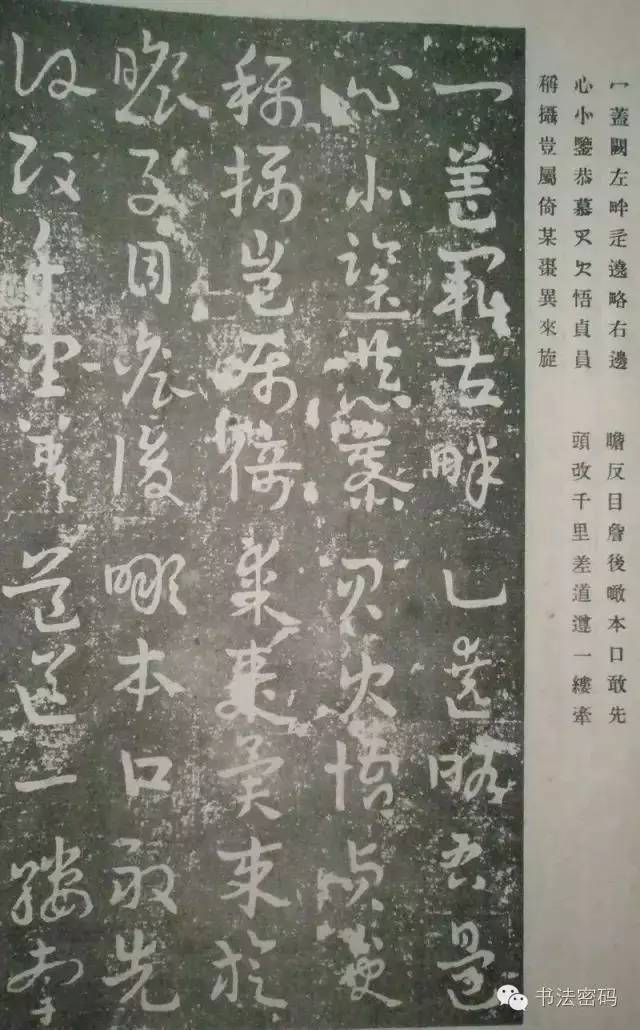 冖蓋闕左畔辵遶略右邊
心小鑒恭慕叉欠悟貞員
稱攝豈屬倚某棗異來旋
瞻反目詹後瞰本口敢先
頭改千里差道遵一縷牽
一蓋闕左畔辵遶略右邊
心小鑒恭慕叉欠悟貞員
稱攝豈屬倚某棗異來旋
瞻反目詹後瞰本口敢先
頭改千里差道遵一縷牽
书法密码